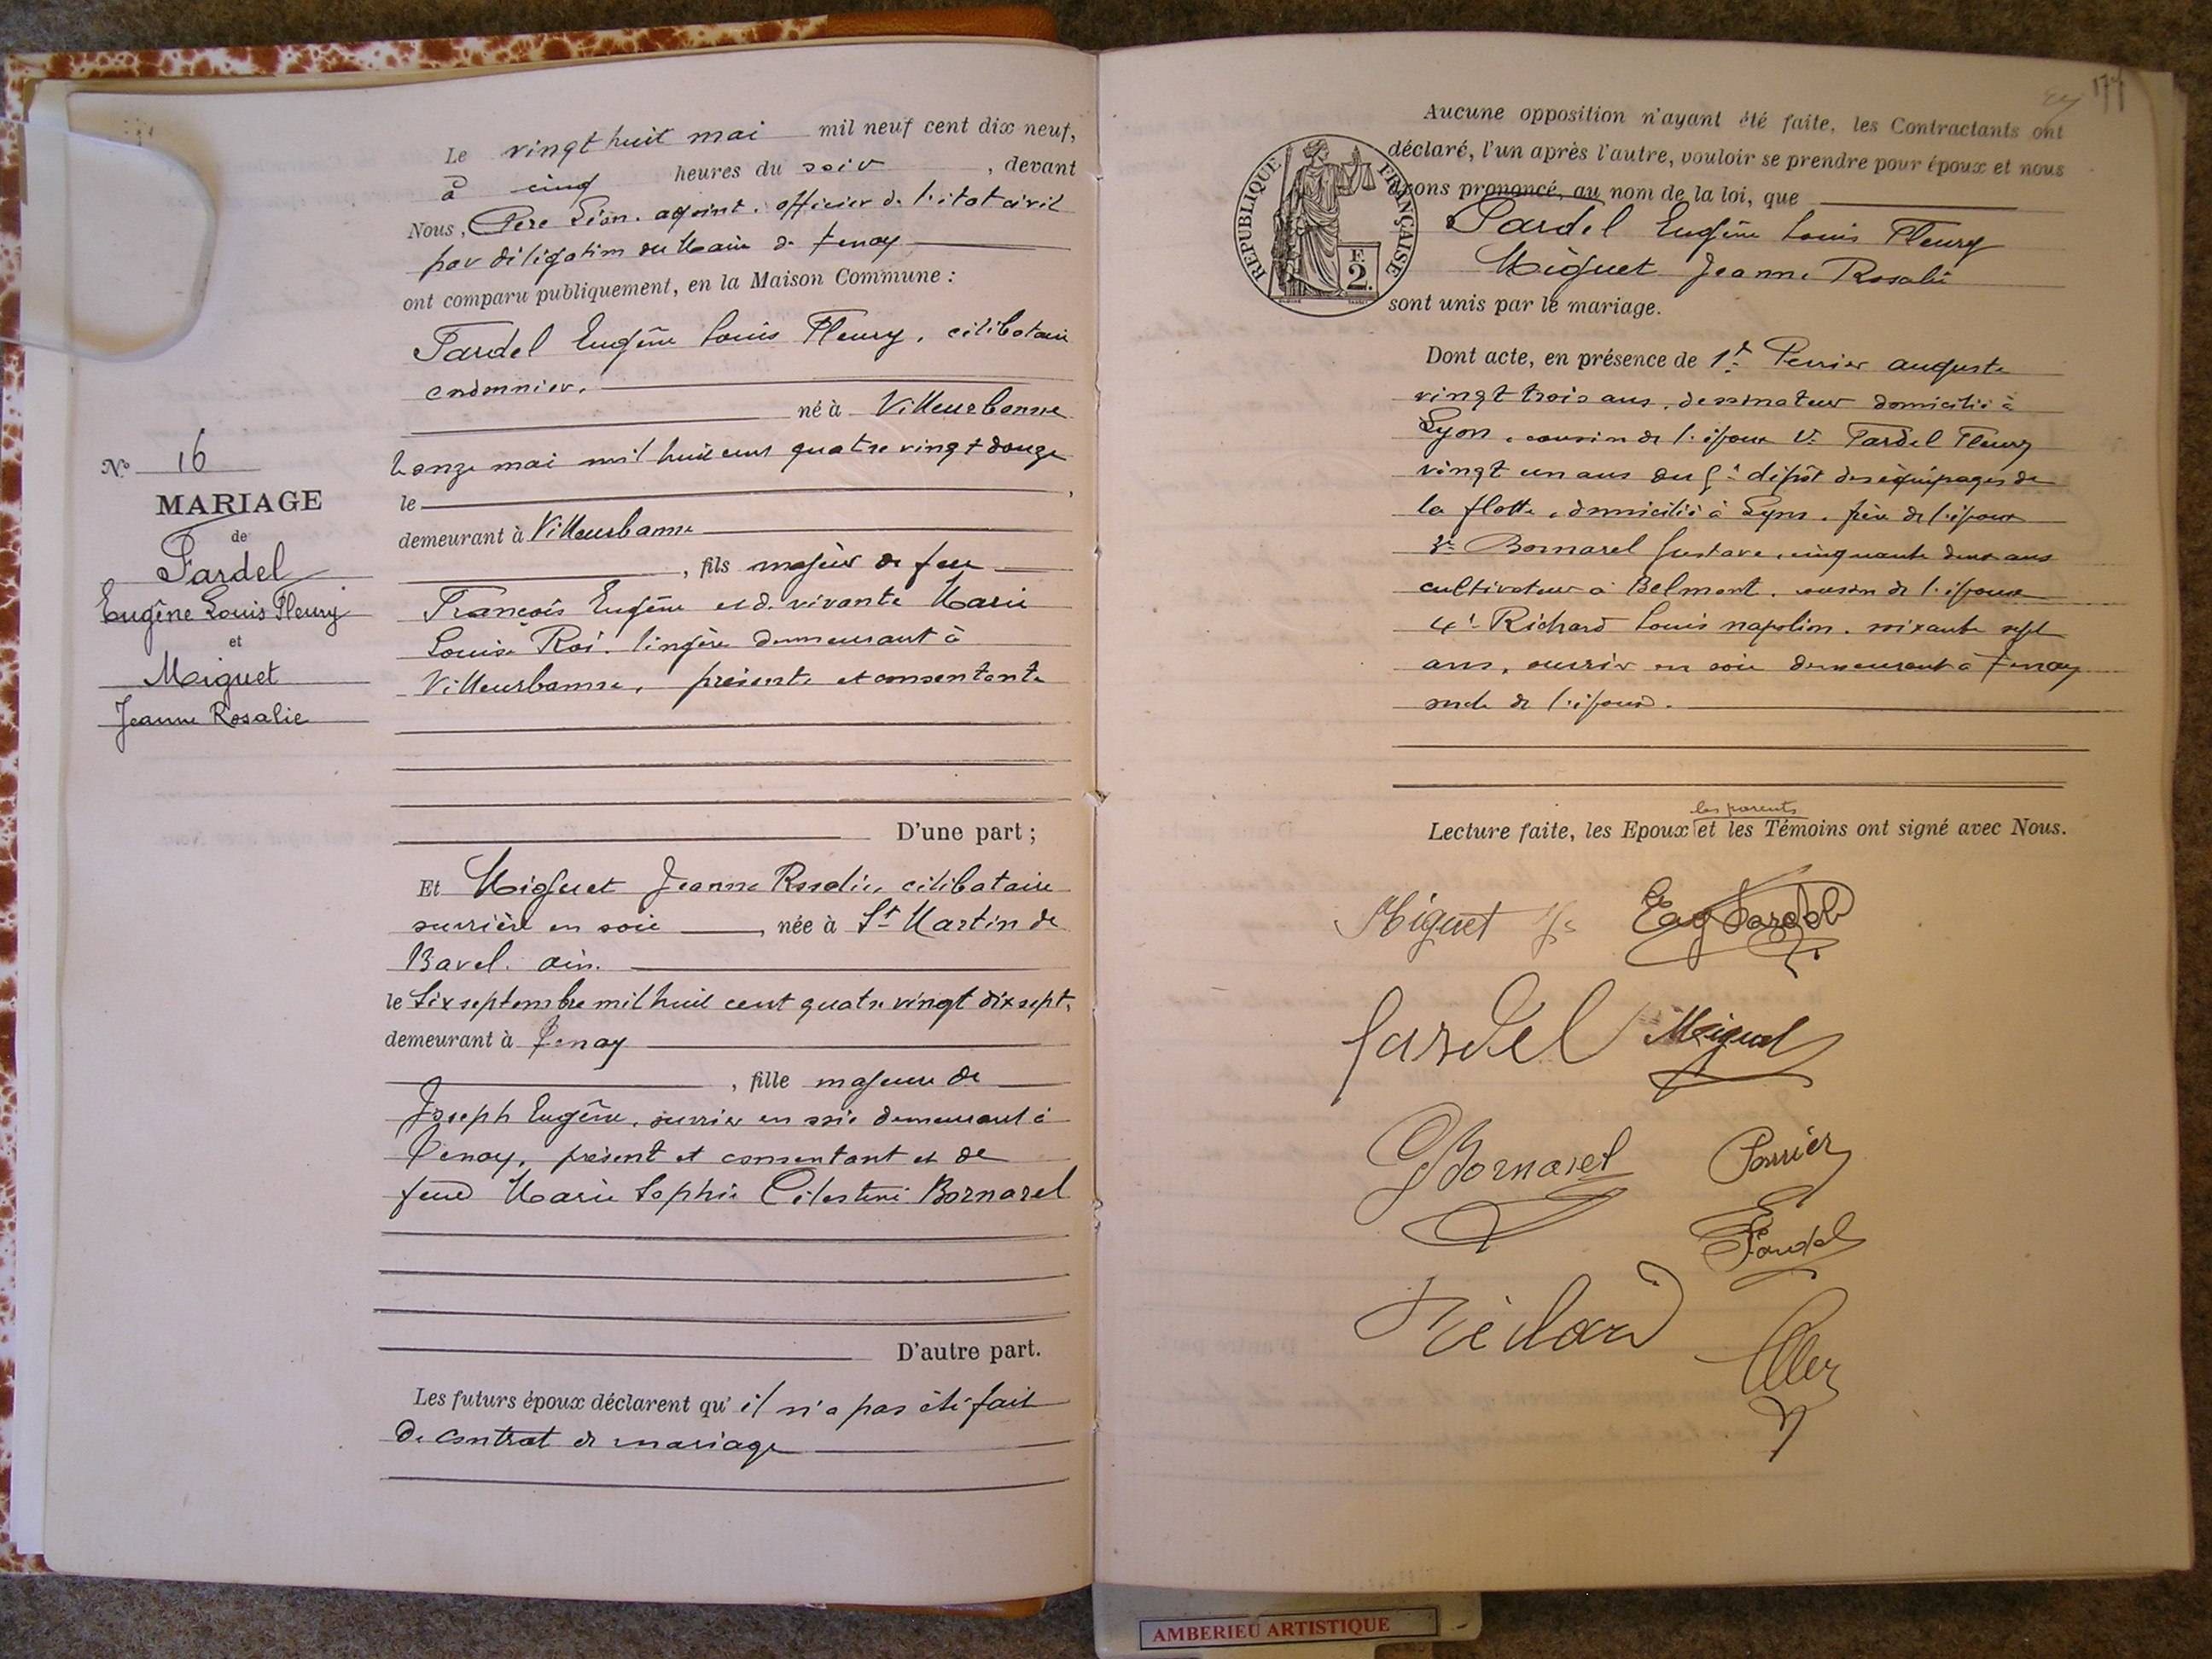 Le vingt huit mai mil neuf cent dix neuf,
à cinq heures du soir, devant
Nous, Père Léon. adjoint. officier de l'état civil
par délégation du Maire de Tenay
ont comparu publiquement, en la Maison Commune :
Fardel Eugène Louis Fleury, célibataire
cordonnier,
né à Villeurbanne
le onze mai mil huit cent quatre vingt douze
le
demeurant à Villeurbanne
, fils majeur de feu
François Eugène et de vivante Marie
Louise Roi. lingère demeurant à
Villeurbanne, présente et consentante
D'une part ;
No 16
MARIAGE
de
Fardel
Eugène Louis Fleury
et
Miguet
Jeanne Rosalie
Et Miguet Jeanne Rosalie, célibataire
ouvrière en soie, née à St Martin de
Bavel. ain.
le six septembre mil huit cent quatre vingt dix sept,
demeurant à Tenay
, fille majeure de
Joseph Eugène, ouvrier en soie demeurant à
Tenay, présent et consentant et de
feue Marie Sophie Célestine Bornarel
D'autre part.
Les futurs époux déclarent qu'il n'a pas été fait
de contrat de mariage
177
Aucune opposition n'ayant été faite, les Contractants ont
déclaré, l'un après l'autre, vouloir se prendre pour époux et nous
avons prononcé, au nom de la loi, que
Fardel Eugène Louis Fleury
Miguet Jeanne Rosalie
sont unis par le mariage.
REPUBLIQUE FRANÇAISE
F. 2.
Dont acte, en présence de 1t Perrier auguste
vingt trois ans, dessinateur domicilié à
Lyon, cousin de l'époux 2t Fardel Fleury
vingt un ans au 5e dépôt des équipages de
la flotte, domicilié à Lyon. frère de l'époux
3t Bornarel Gustave, cinquante deux ans
cultivateur à Belmont. cousin de l'épouse
4t Richard Louis napoléon. soixante sept
ans, ouvrier en soie demeurant à Tenay
oncle de l'époux.
les parents
Lecture faite, les Epoux et les Témoins ont signé avec Nous.
Miguet Eug Fardel
Fardel Miguet
G Bornarel Perrier
Fardel
Richard
AMBERIEU ARTISTIQUE